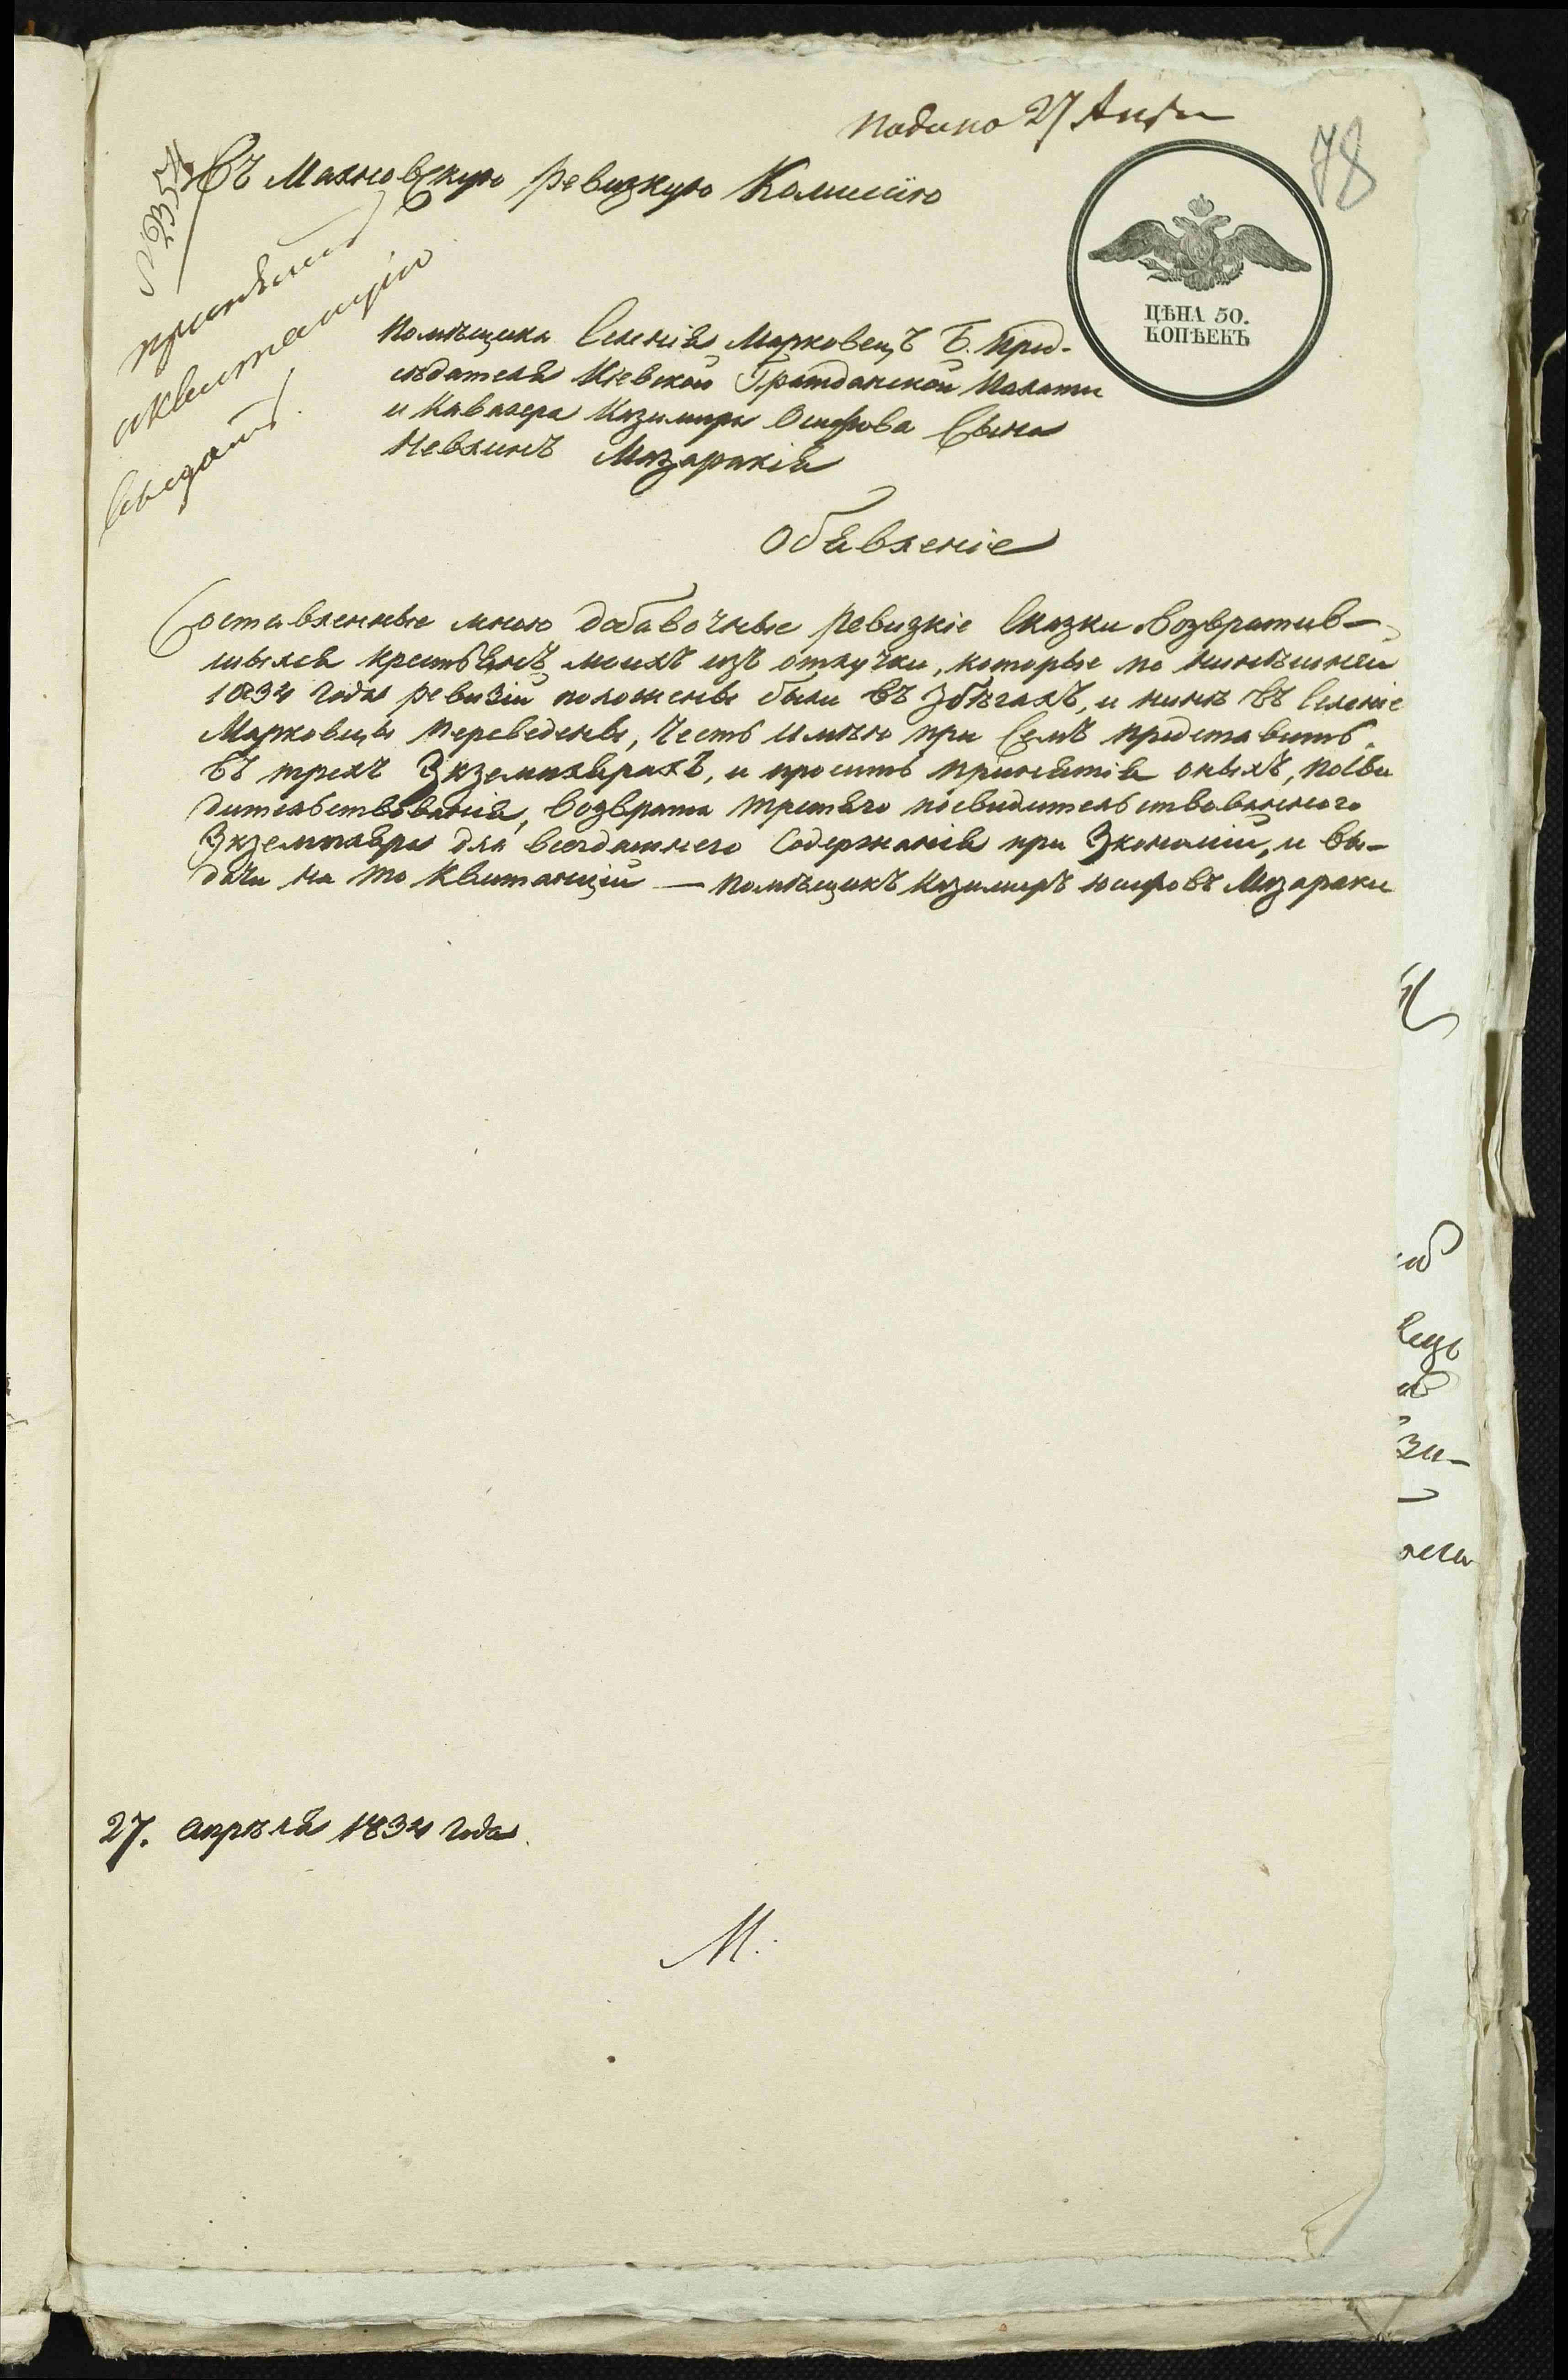 подано 27 Апр
78
Въ Махновскую Ревизкую Комисію
№ 2357
принявъ
а квитанцію
выдать
ЦѢНА 50.
КОПѢЕКЪ
Помѣщика Селенія Марковецъ Б. Пред-
сѣдателя Кіевской Гражданской Палаты
и Кавалера Казимира Осифова Сына
Невлинъ Мазаракія
Обявленіе
Составленные мною добавочные Ревизкіе Сказки Возвратив-
шыхся крестьянъ моихъ изъ отлучки, которые по нинѣшнеи
1834 года ревизіи положены были въ збѣгахъ, и нинѣ въ Селеніе
Марковцы переведены, Честь имѣю при Семъ представить
въ трехъ Экземплярахъ, и просить принятія оныхъ, посви
дительствованія, Возврата третяго посвидительствованного
Экземпляра для всегдашнего Содержанія при Экономіи, и вы-
дачи на то Квитанціи — Помѣщикъ Казимиръ Юсифовъ Мазараки
27. апрѣля 1834 года.
М.